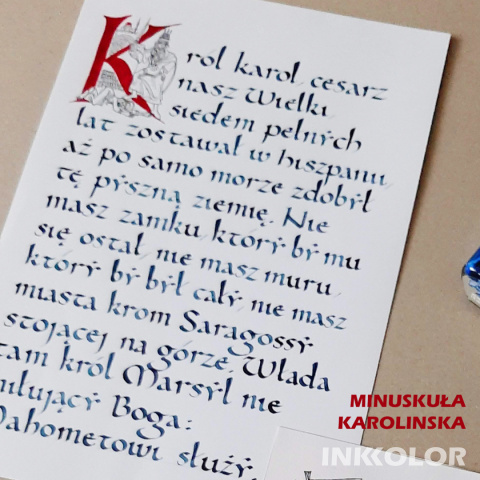 Król karol, cesarz
nasz wielki,
siedem pełnych
lat zostawał w hiszpanii,
aż po samo morze zdobył
tę pyszną ziemię. Nie
masz zamku, który by mu
się ostał, nie masz muru,
który by był cały, nie masz
miasta krom Saragossy
stojącej na górze. Włada
tam król Marsyl nie
miłujący Boga:
Mahometowi służy,
MINUSKUŁA
KAROLINSKA
INKKOLOR